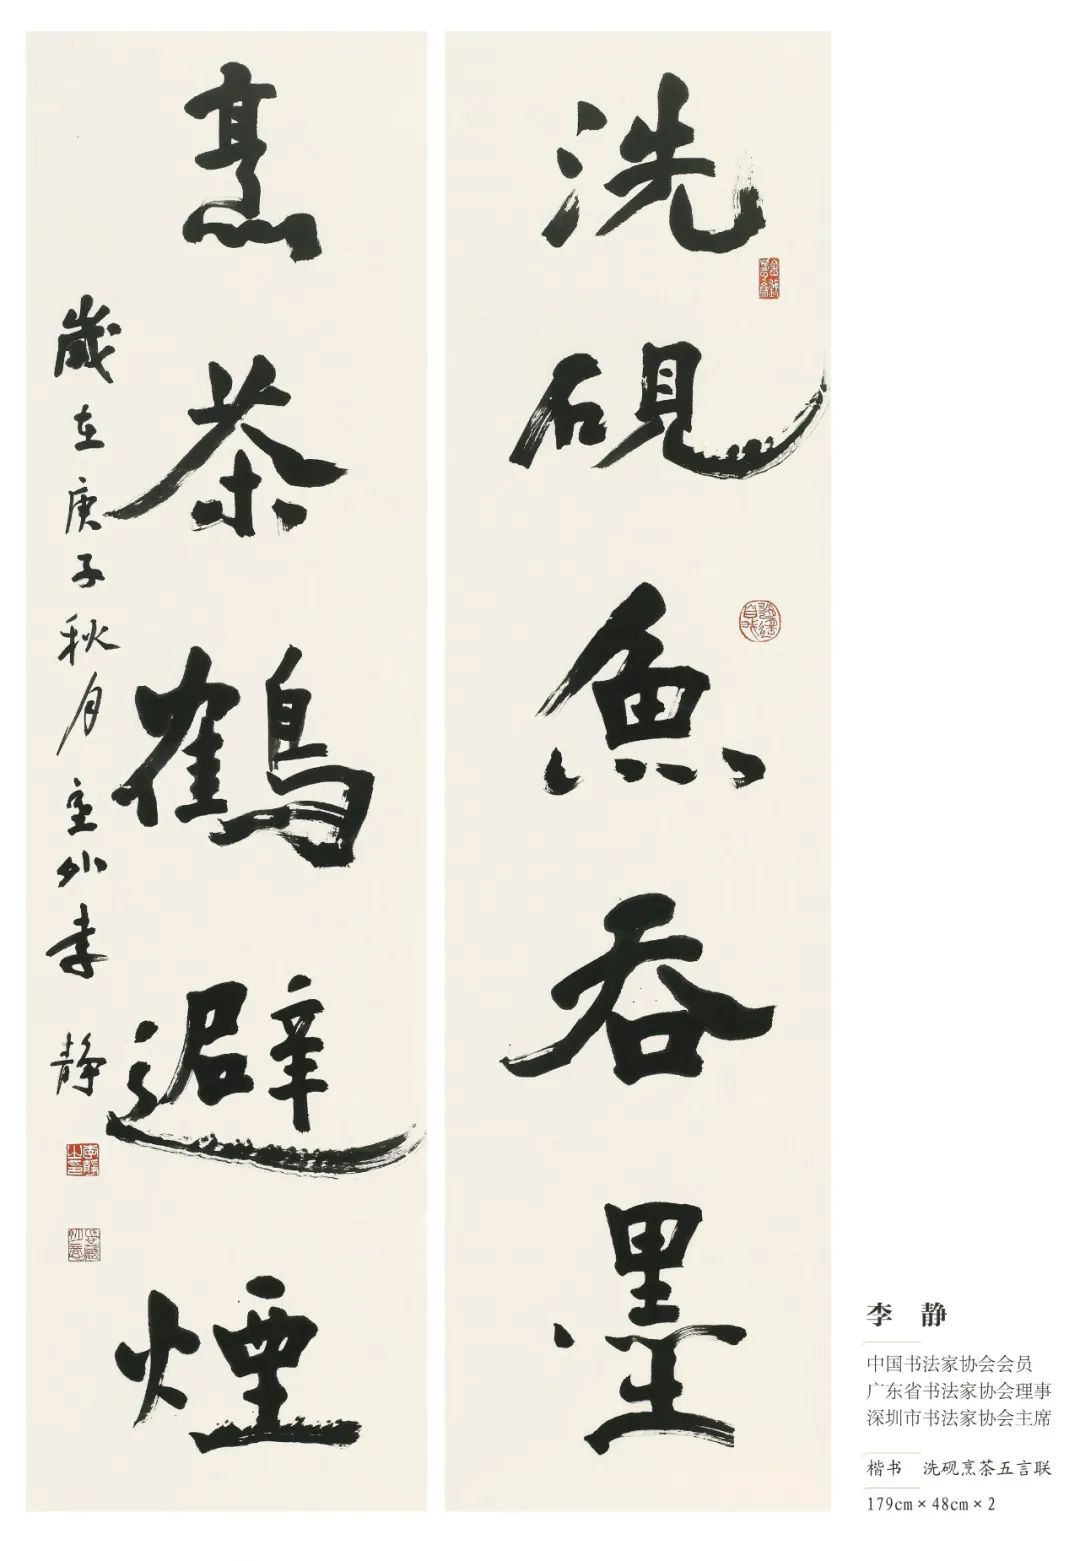 洗硯魚吞墨
烹茶鶴避煙
歲在庚子秋月塞外李靜
李静
中国书法家协会会员
广东省书法家协会理事
深圳市书法家协会主席
楷书 洗砚烹茶五言联
179cm×48cm×2